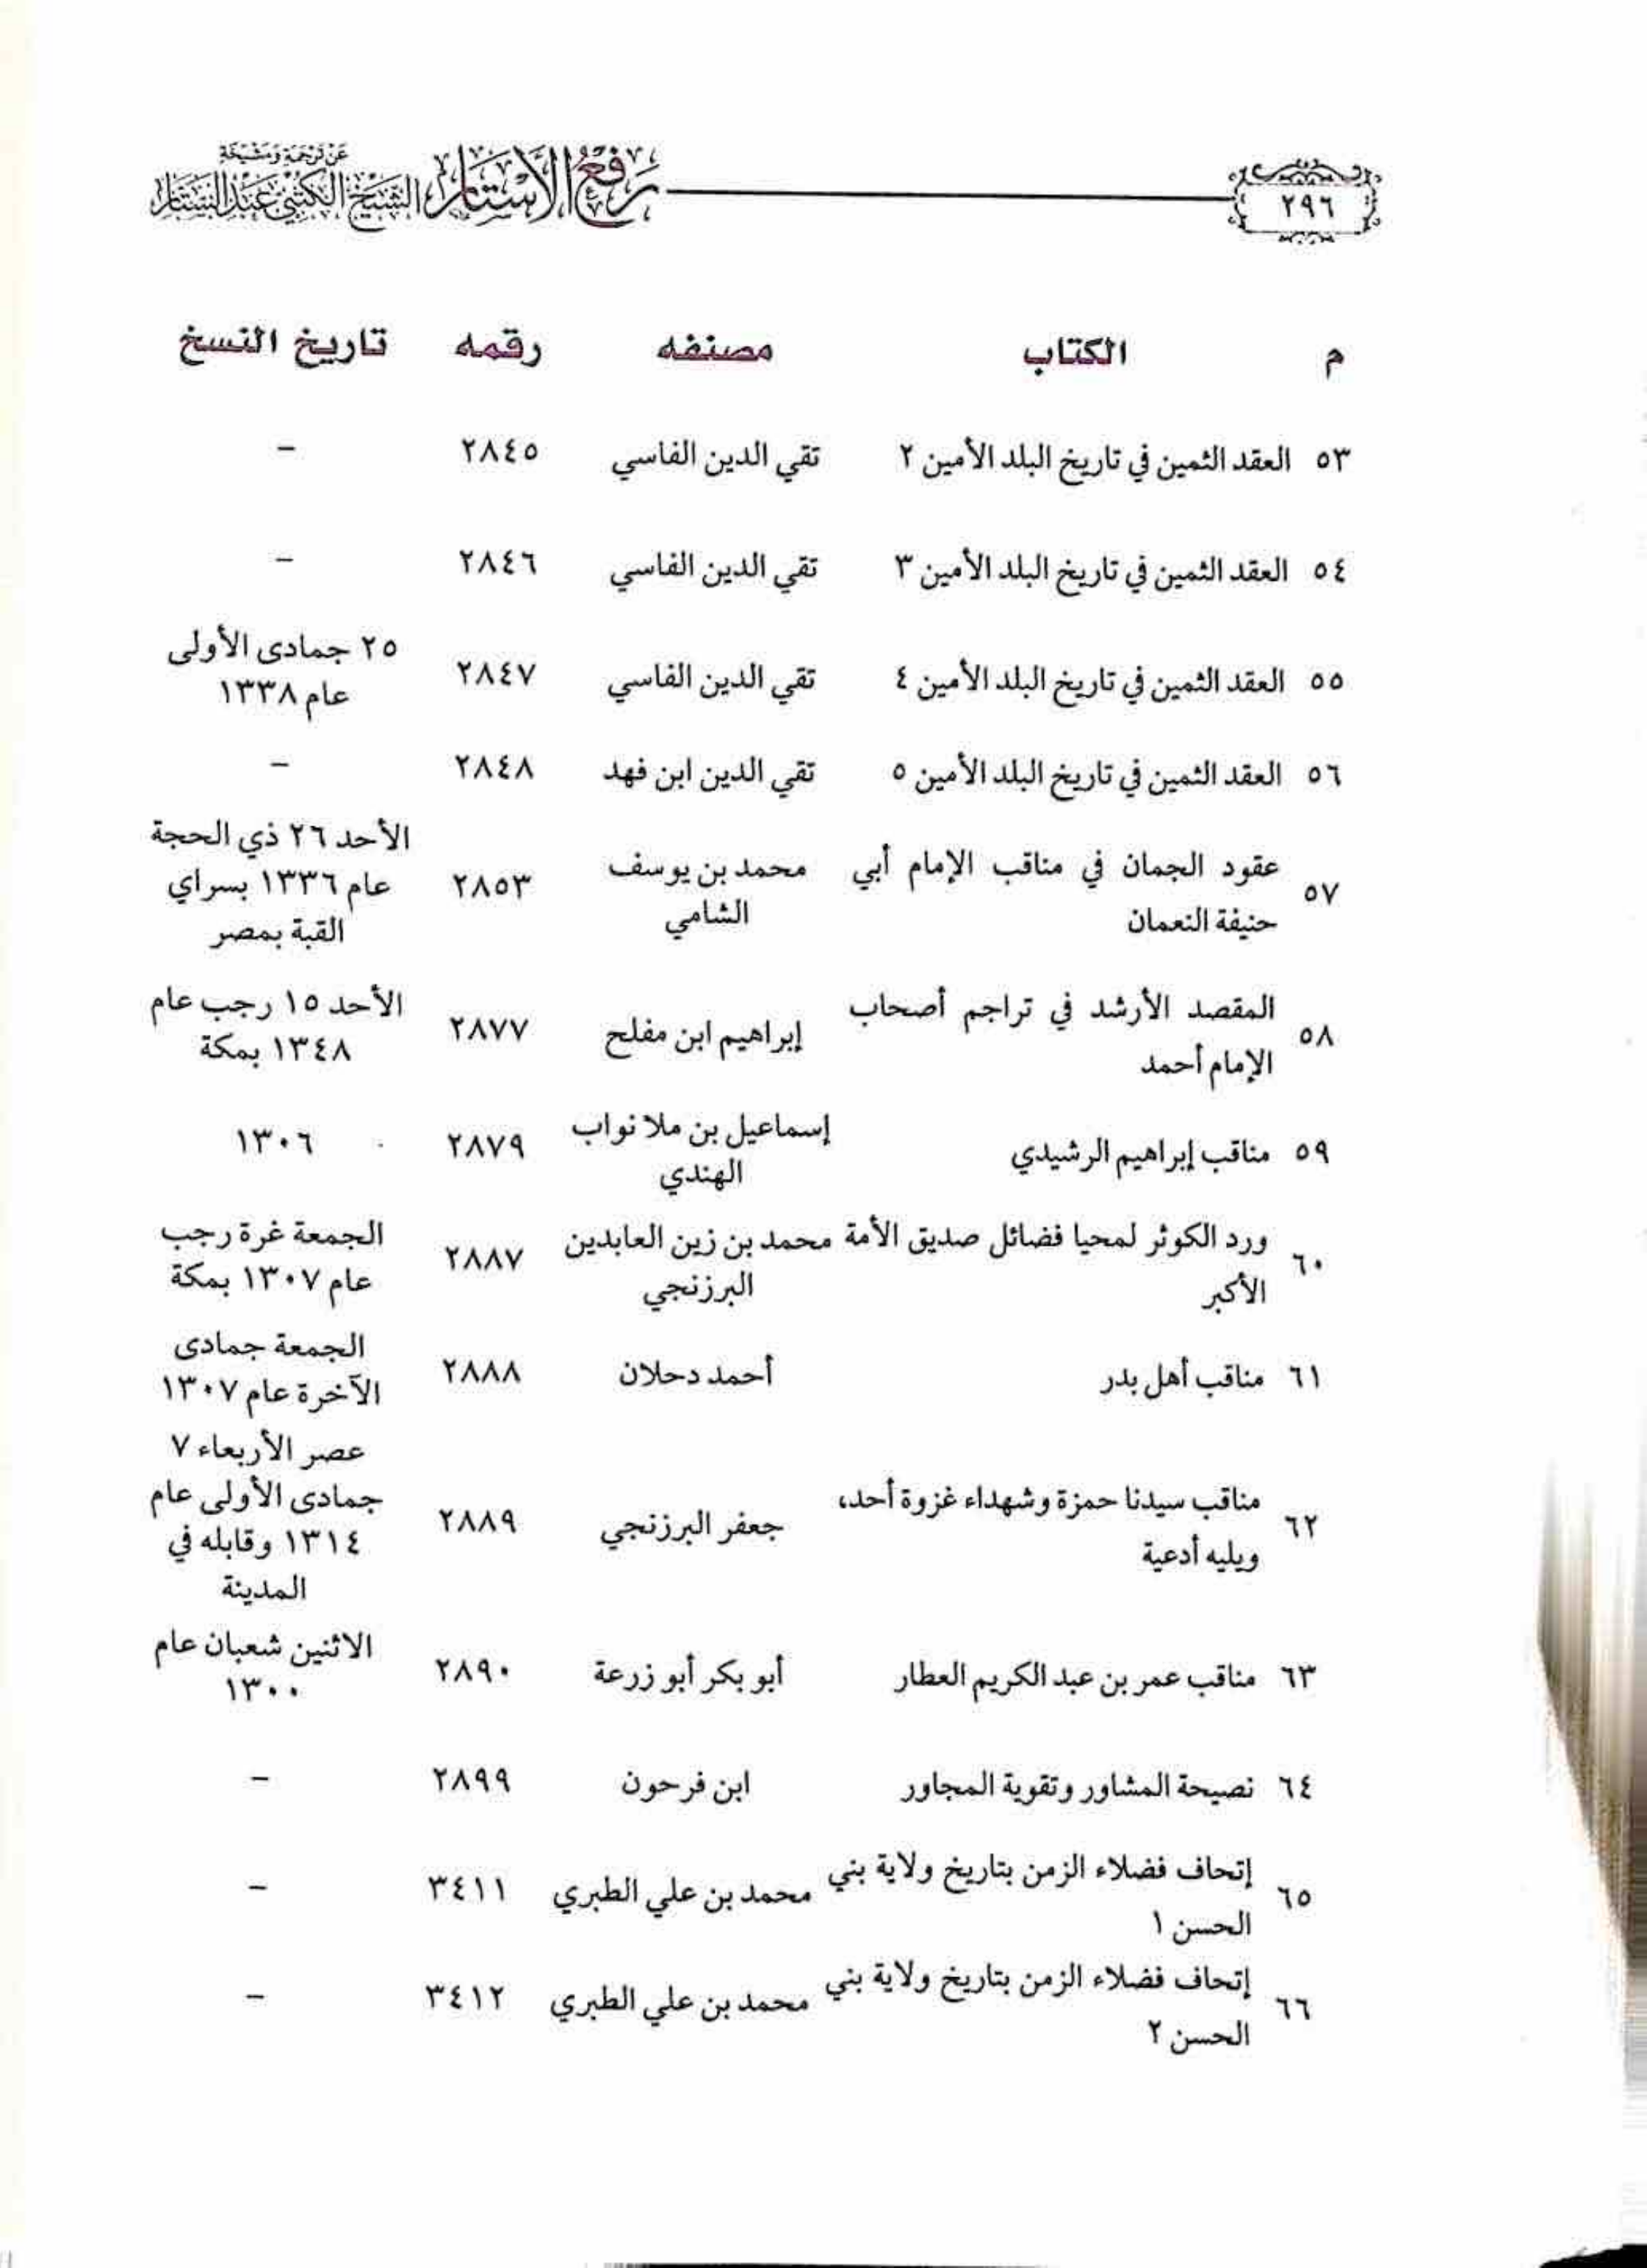 ٢٩٦
رفع الأستار
عن ترجمة ومشيخة
الشيخ الكتبي عبد الستار
م الكتاب مصنفه رقمه تاريخ النسخ
٥٣ العقد الثمين في تاريخ البلد الأمين ٢ تقي الدين الفاسي ٢٨٤٥ –
٥٤ العقد الثمين في تاريخ البلد الأمين ٣ تقي الدين الفاسي ٢٨٤٦ –
٥٥ العقد الثمين في تاريخ البلد الأمين ٤ تقي الدين الفاسي ٢٨٤٧ ٢٥ جمادى الأولى
عام ١٣٣٨
٥٦ العقد الثمين في تاريخ البلد الأمين ٥ تقي الدين ابن فهد ٢٨٤٨ –
٥٧ عقود الجمان في مناقب الإمام أبي
حنيفة النعمان
محمد بن يوسف
الشامي
٢٨٥٣
الأحد ٢٦ ذي الحجة
عام ١٣٣٦ بسراي
القبة بمصر
٥٨ المقصد الأرشد في تراجم أصحاب
الإمام أحمد
إبراهيم ابن مفلح
٢٨٧٧
الأحد ١٥ رجب عام
١٣٤٨ بمكة
٥٩ مناقب إبراهيم الرشيدي
إسماعيل بن ملا نواب
الهندي
٢٨٧٩
١٣٠٦
٦٠ ورد الكوثر لمحيا فضائل صديق الأمة
الأكبر
محمد بن زين العابدين
البرزنجي
٢٨٨٧
الجمعة غرة رجب
عام ١٣٠٧ بمكة
٦١ مناقب أهل بدر
أحمد دحلان
٢٨٨٨
الجمعة جمادى
الآخرة عام ١٣٠٧
٦٢ مناقب سيدنا حمزة وشهداء غزوة أحد،
ويليه أدعية
جعفر البرزنجي
٢٨٨٩
عصر الأربعاء ٧
جمادى الأولى عام
١٣١٤ وقابله في
المدينة
٦٣ مناقب عمر بن عبد الكريم العطار
أبو بكر أبو زرعة
٢٨٩٠
الاثنين شعبان عام
١٣٠٠
٦٤ نصيحة المشاور وتقوية المجاور ابن فرحون ٢٨٩٩ –
٦٥ إتحاف فضلاء الزمن بتاريخ ولاية بني
الحسن ١
محمد بن علي الطبري
٣٤١١
–
٦٦ إتحاف فضلاء الزمن بتاريخ ولاية بني
الحسن ٢
محمد بن علي الطبري
٣٤١٢
–